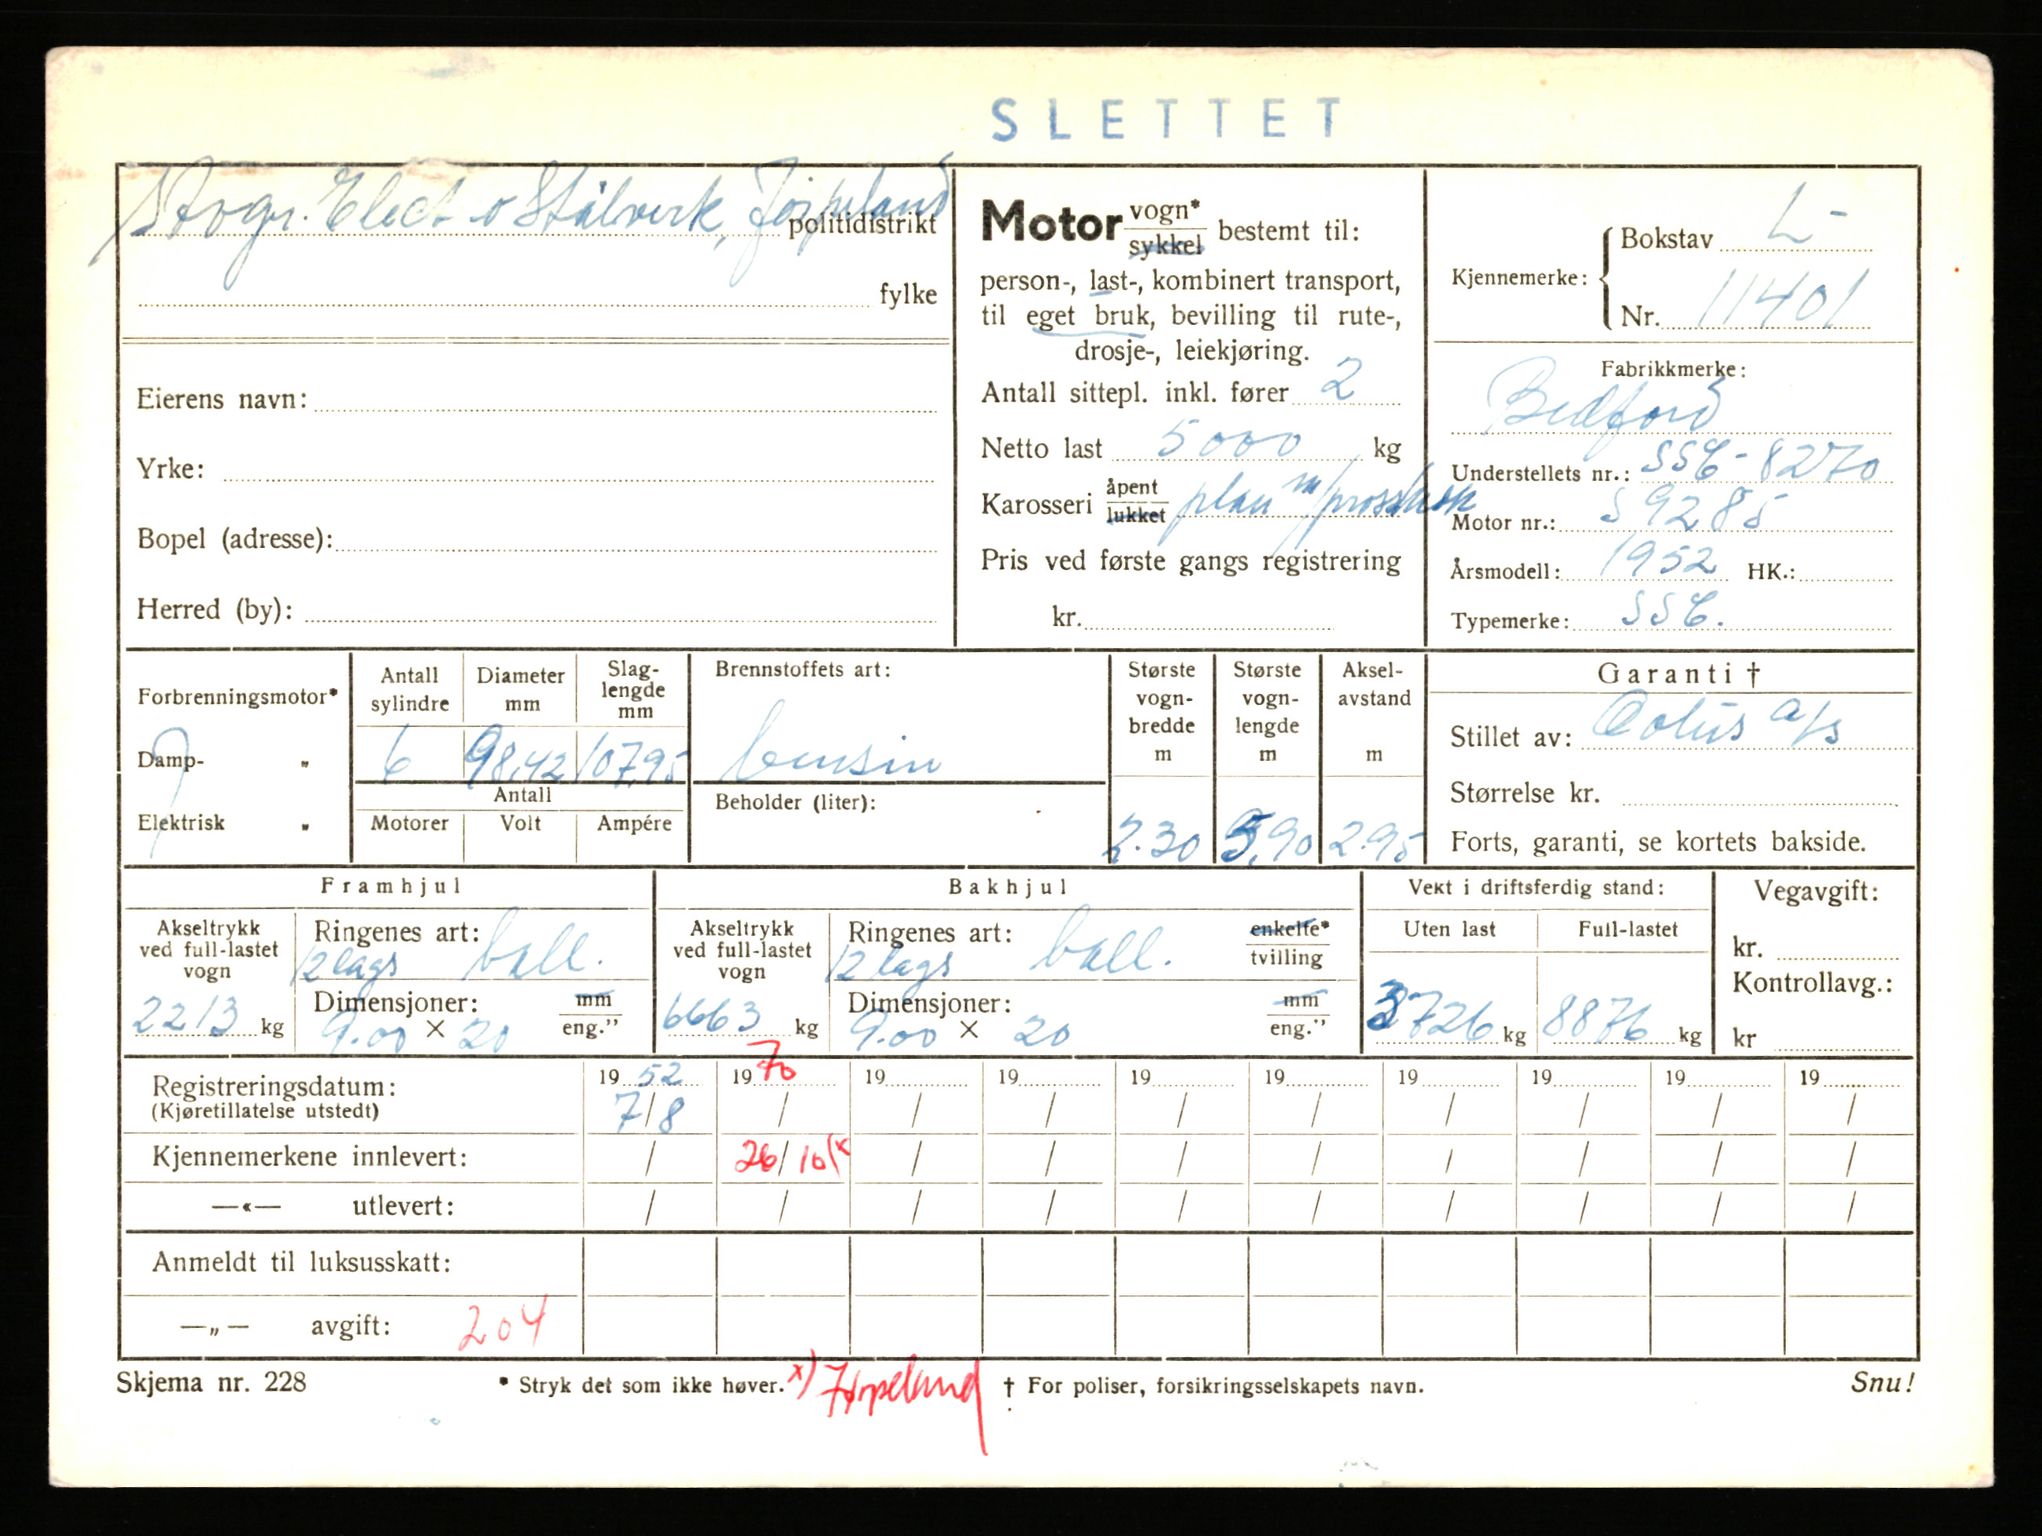 SLETTET
Stvgr. Elect. o Stålverk, Jørpeland
politidistrikt
fylke
Eierens navn:
Yrke:
Bopel (adresse):
Herred (by):
Motor vogn* sykkel bestemt til:
person-, last-, kombinert transport,
til eget bruk, bevilling til rute-,
drosje-, leiekjøring.
Antall sittepl. inkl. fører 2
Netto last 5000 kg
Karosseri åpent lukket plan m/
Pris ved første gangs registrering
kr.
Kjennemerke: Bokstav L-
Nr. 11401
Fabrikkmerke:
Bedford
Understellets nr.: SSC-8270
Motor nr.: S9285
Årsmodell: 1952 HK.:
Typemerke: SSC.
Forbrenningsmotor*
Damp- „
Elektrisk „
Antall sylindre
Diameter mm
Slag-lengde mm
6 98,42 107,95
Antall
Motorer Volt Ampére
Brennstoffets art:
bensin
Beholder (liter):
Største vogn-bredde m
2.30
Største vogn-lengde m
5,90
Aksel-avstand m
2.95
Garanti †
Stillet av: Cotus a/s
Størrelse kr.
Forts, garanti, se kortets bakside.
Framhjul
Akseltrykk ved full-lastet vogn
2213 kg
Ringenes art:
12 lags ball.
Dimensjoner: mm
9.00 × 20 eng."
Bakhjul
Akseltrykk ved full-lastet vogn
6663 kg
Ringenes art: enkelte*
12 lags ball. tvilling
Dimensjoner: mm
9.00 × 20 eng."
Vekt i driftsferdig stand:
Uten last Full-lastet
3726 kg 8876 kg
Vegavgift:
kr.
Kontrollavg.:
kr
Registreringsdatum: 19 52 19 70 19 19 19 19 19 19 19 19
(Kjøretillatelse utstedt) 7/8 / / / / / / / / /
Kjennemerkene innlevert: / 26/10 (x / / / / / / / /
—«— utlevert: / / / / / / / / / /
Anmeldt til luksusskatt:
—„— avgift: 204
Skjema nr. 228
* Stryk det som ikke høver.
x) Jørpeland
† For poliser, forsikringsselskapets navn.
Snu!